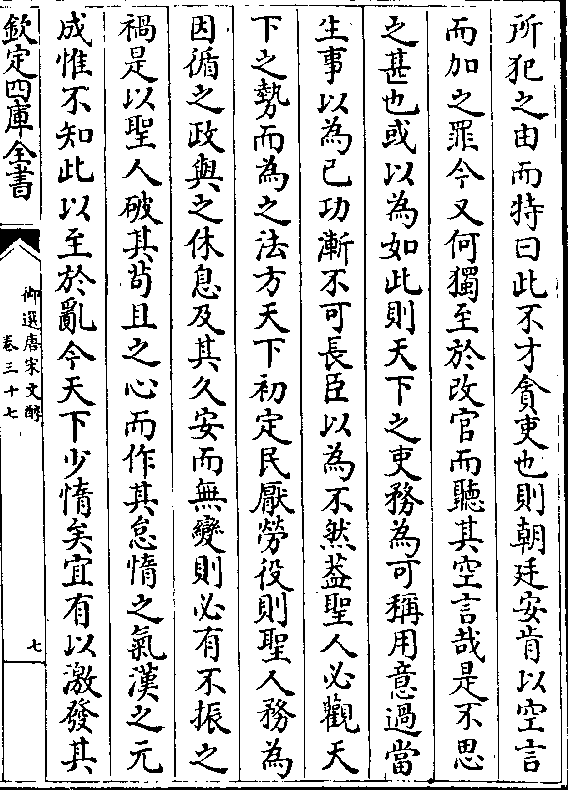 所犯之由而特曰此不才貪吏也則朝廷安肯以空言
而加之罪今又何獨至於改官而聽其空言哉是不思
之甚也或以為如此則天下之吏務為可稱用意過當
生事以為已功漸不可長臣以為不然葢聖人必觀天
下之勢而為之法方天下初定民厭勞役則聖人務為
因循之政與之休息及其久安而無變則必有不振之
禍是以聖人破其苟且之心而作其怠惰之氣漢之元
成惟不知此以至於亂今天下少惰矣宜有以激發其
欽定四庫全書
御選唐宋文醇
卷三十七
七